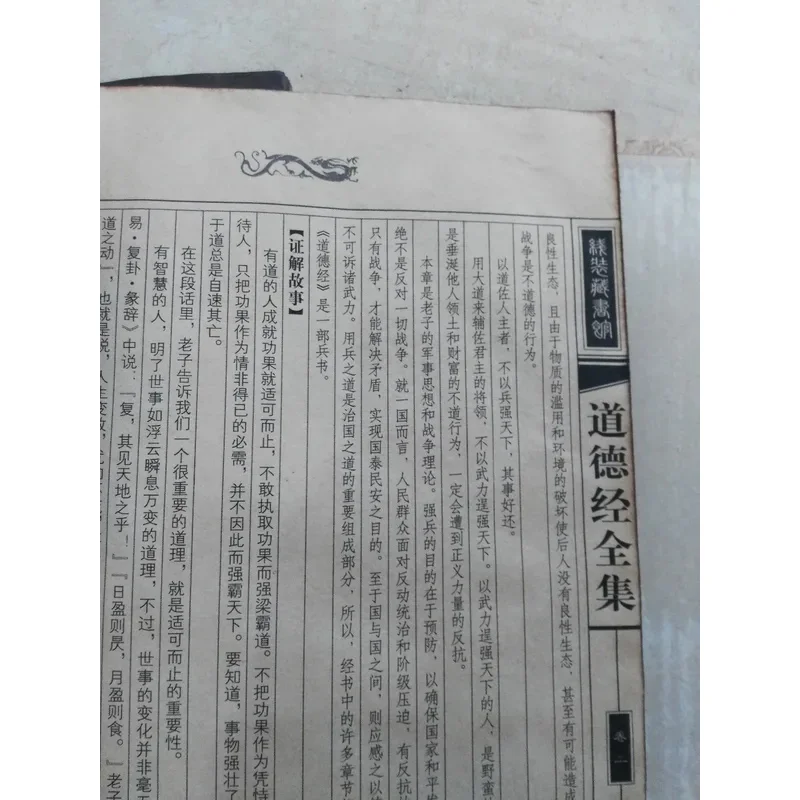 线装藏书馆
道德经全集
卷一
良性生态，且由于物质的滥用和环境的破坏使后人没有良性生态，甚至有可能造成
战争是不道德的行为。
以道佐人主者，不以兵强天下，其事好还。
用大道来辅佐君主的将领，不以武力逞强天下。以武力逞强天下的人，是野蛮
是垂涎他人领土和财富的不道行为，一定会遭到正义力量的反抗。
本章是老子的军事思想和战争理论。强兵的目的在于预防，以确保国家和平
绝不是反对一切战争。就一国而言，人民群众面对反动统治和阶级压迫，有反抗的
只有战争，才能解决矛盾，实现国泰民安之目的。至于国与国之间，则应感之以
不可诉诸武力。用兵之道是治国之道的重要组成部分，所以，经书中的许多章节
《道德经》是一部兵书。
【证解故事】
有道的人成就功果就适可而止，不敢执取功果而强梁霸道。不把功果作为凭恃
待人，只把功果作为情非得已的必需，并不因此而强霸天下。要知道，事物强壮了
于道总是自速其亡。
在这段话里，老子告诉我们一个很重要的道理，就是适可而止的重要性。
有智慧的人，明了世事如浮云瞬息万变的道理，不过，世事的变化并非毫无
易·复卦·彖辞》中说：『复，其见天地之乎！』『日盈则昃，月盈则食。』老子
道之动』，也就是说，人生变故，